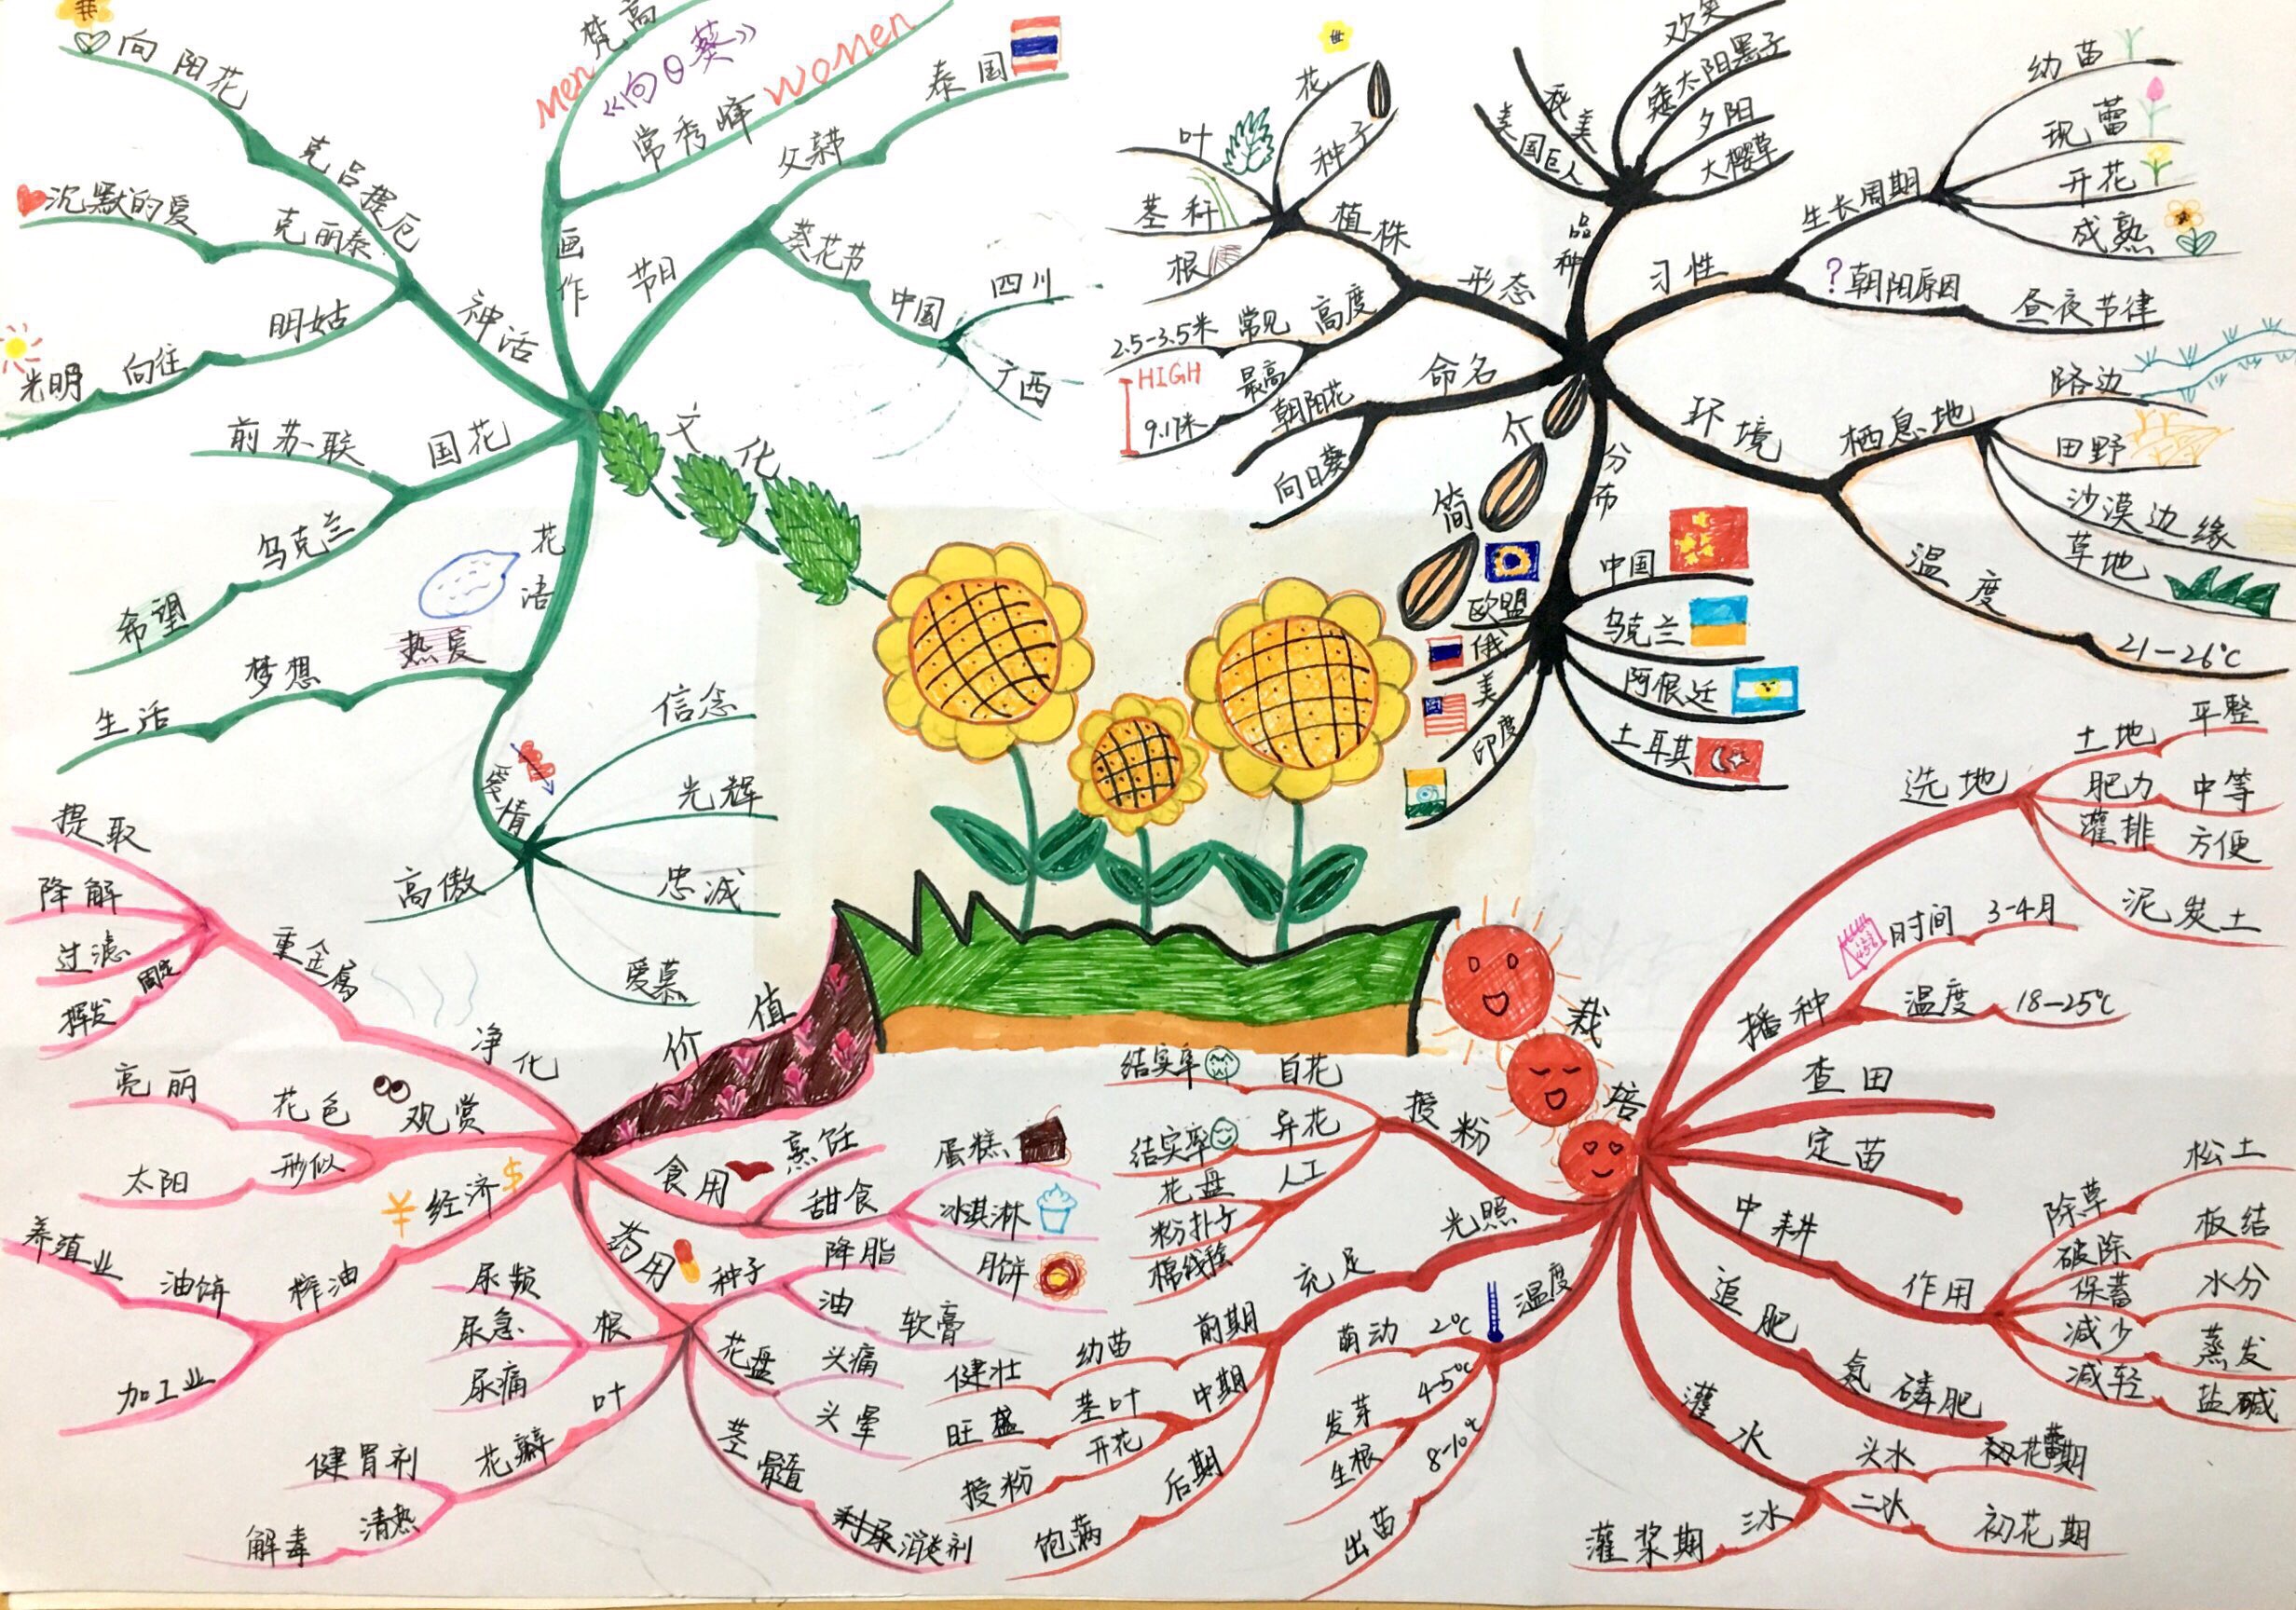 简介
品种
欢笑
太阳黑子
夕阳
大樱草
秋美
美国巨人
习性
生长周期
幼苗
现蕾
开花
成熟
?朝阳原因
昼夜节律
环境
栖息地
路边
田野
沙漠边缘
草地
温度
21-26℃
分布
中国
乌克兰
阿根廷
土耳其
欧盟
俄
美
印度
命名
朝阳花
向日葵
形态
植株
花
种子
叶
茎秆
根
高度
常见
2.5-3.5米
最高
9.17米
HIGH
栽培
选地
土地
平整
肥力
中等
灌排
方便
泥炭土
播种
时间
3-4月
温度
18-25℃
查田
定苗
中耕
作用
除草
松土
破除
板结
保蓄
水分
减少
蒸发
减轻
盐碱
追肥
氮磷肥
灌水
头水
二水
初花期
三水
灌浆期
温度
萌动
2℃
4-5℃
发芽
生根
8-10℃
出苗
光照
充足
前期
幼苗
健壮
中期
茎叶
旺盛
开花
授粉
后期
饱满
授粉
自花
结实率
异花
结实率
人工
花盘
粉扑子
价值
食用
烹饪
甜食
蛋糕
冰淇淋
月饼
药用
种子
降脂
油
软膏
花盘
头痛
头晕
茎髓
利尿消炎剂
叶
花瓣
健胃剂
清热
解毒
根
尿频
尿急
尿痛
¥经济$
榨油
油饼
养殖业
加工业
观赏
花色
亮丽
形似
太阳
净化
重金属
提取
降解
过滤
固定
挥发
文化
花语
热爱
梦想
生活
爱情
信念
光辉
忠诚
爱慕
高傲
国花
前苏联
乌克兰
希望
神话
克吕提厄
向阳花
克丽泰
沉默的爱
明姑
向往
光明
画作
梵高
Men
《向日葵》
常秀峰
women
节日
父亲节
泰国
葵花节
中国
四川
广西